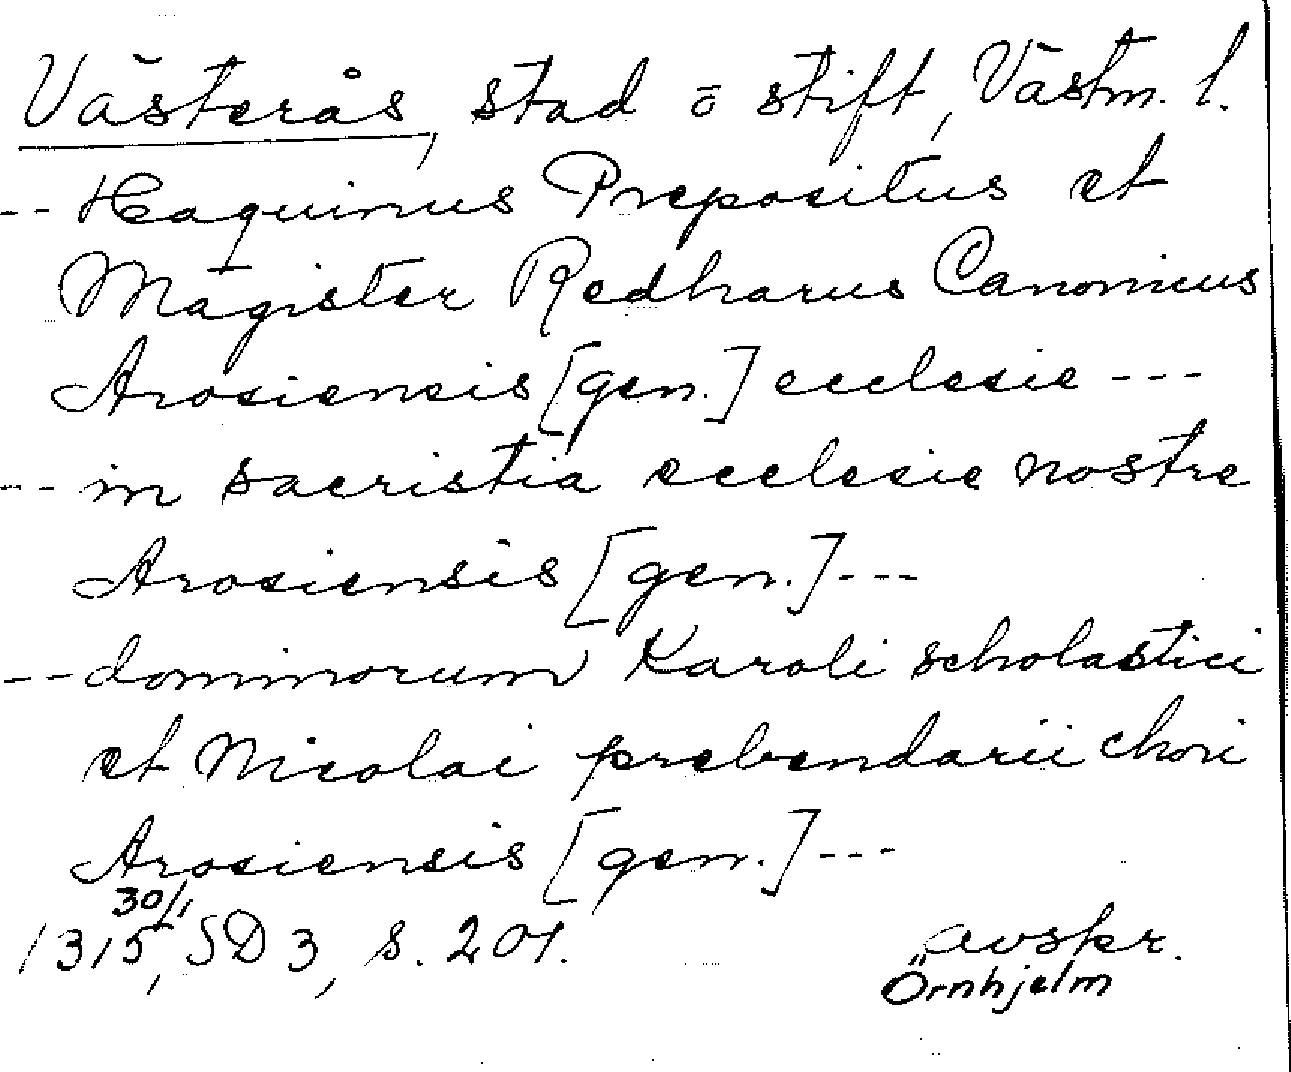 Västerås, stad o stift, Västm. l.
-- Haquinus Prepositus et
Magister Redharus Canonicus
Arosiensis [gen.] ecclesie ---
-- in sacristia ecclesie nostre
Arosiensis [gen.] ---
-- dominorum Karoli scholastici
et Nicolai prebendarii chori
Arosiensis [gen.] ---
30/1
1315, SD 3, s. 201.
avskr.
Örnhjelm